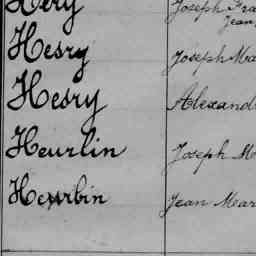 Héry Joseph Fra
Jean
Hesry Joseph Ma
Hesry Alexand
Heurlin Joseph M
Heurbin Jean Mar